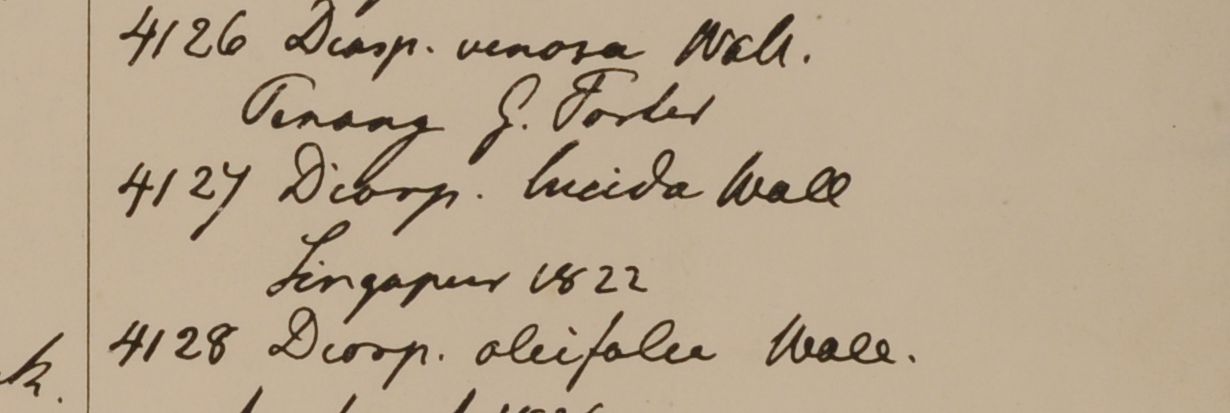 4126 Diosp. venosa Wall.
Penang G. Porter
4127 Diosp. lucida Wall
Singapur 1822
4128 Diosp. oleifolia Wall.